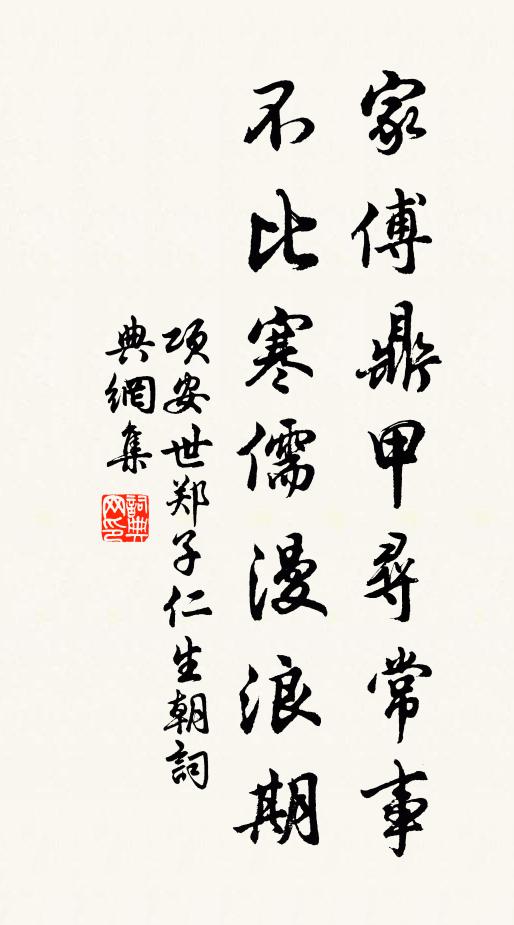 家傅鼎甲尋常事
不比寒儒漫浪期
项安世郑子仁生朝詞
典網集
詞典網印